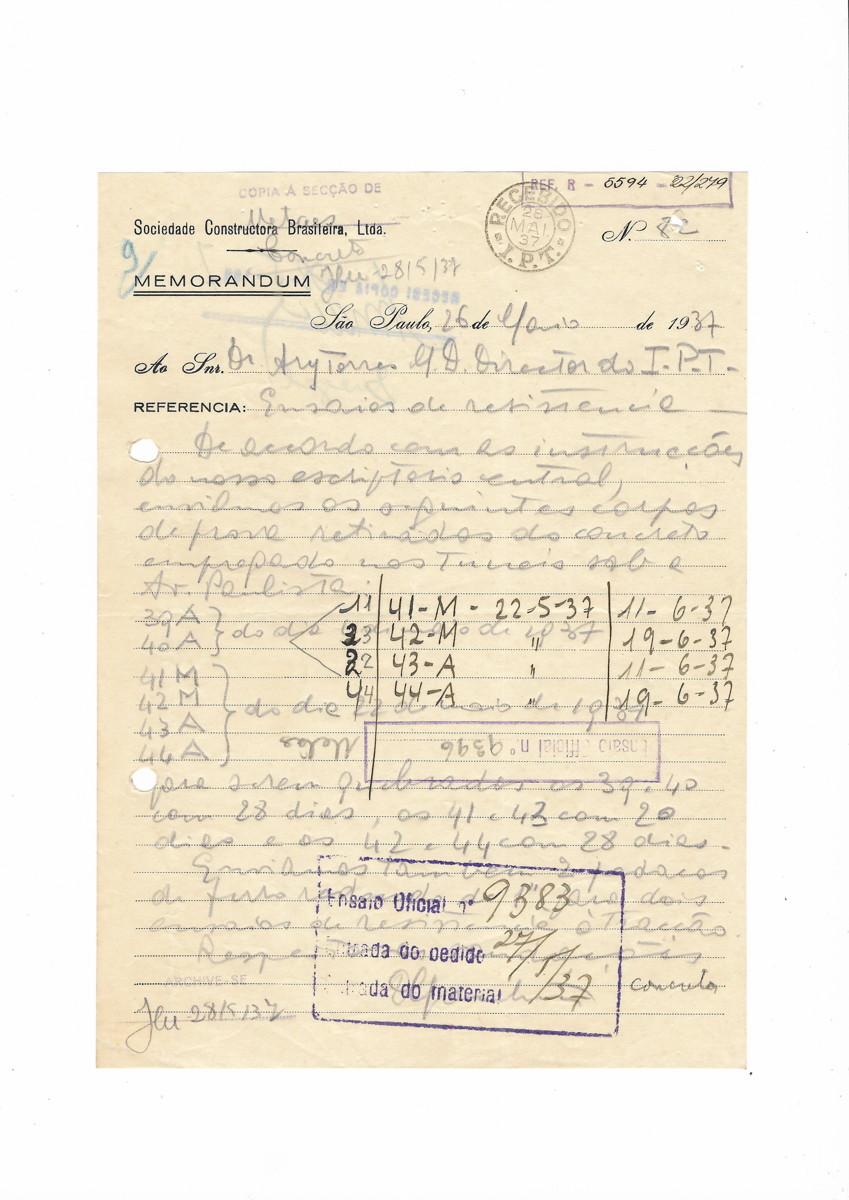 COPIA Á SECÇÃO DE
Metaes
Concreto
REF. R - 5594 - 22/279
RECEBIDO
26
MAI
37
I.P.T.
Sociedade Constructora Brasileira, Ltda.
N. 82
MEMORANDUM
28/5/37
São Paulo, 26 de Maio de 1937
Ao Snr. Dr Ary Torres M.D. Director do I.P.T.-
REFERENCIA: Ensaios de resistencia
De accordo com as instrucções
do nosso escriptorio central,
enviamos os seguintes corpos
de prova retirados do concreto
empregado nos Tuneis sob a
Av. Paulista:
39 A
40 A
11 41-M - 22-5-37 11-6-37
23 42-M " 19-6-37
22 43-A " 11-6-37
44 44-A " 19-6-37
41 M
42 M
43 A
44 A
do dia 22 de maio de 1937
Ensaio Official nº 9396
Metaes
para serem quebrados os 39 e 40
com 28 dias, os 41 e 43 com 20
dias e os 42 e 44 com 28 dias.
Enviamos tambem 2 pedaços
de ferro redondo de para dois
ensaios de resistencia á Tracção
Ensaio Oficial nº 9383
Entrada do pedido 27/5/
Entrada do material /37
concreto
ARCHIVE-SE
28/5/37